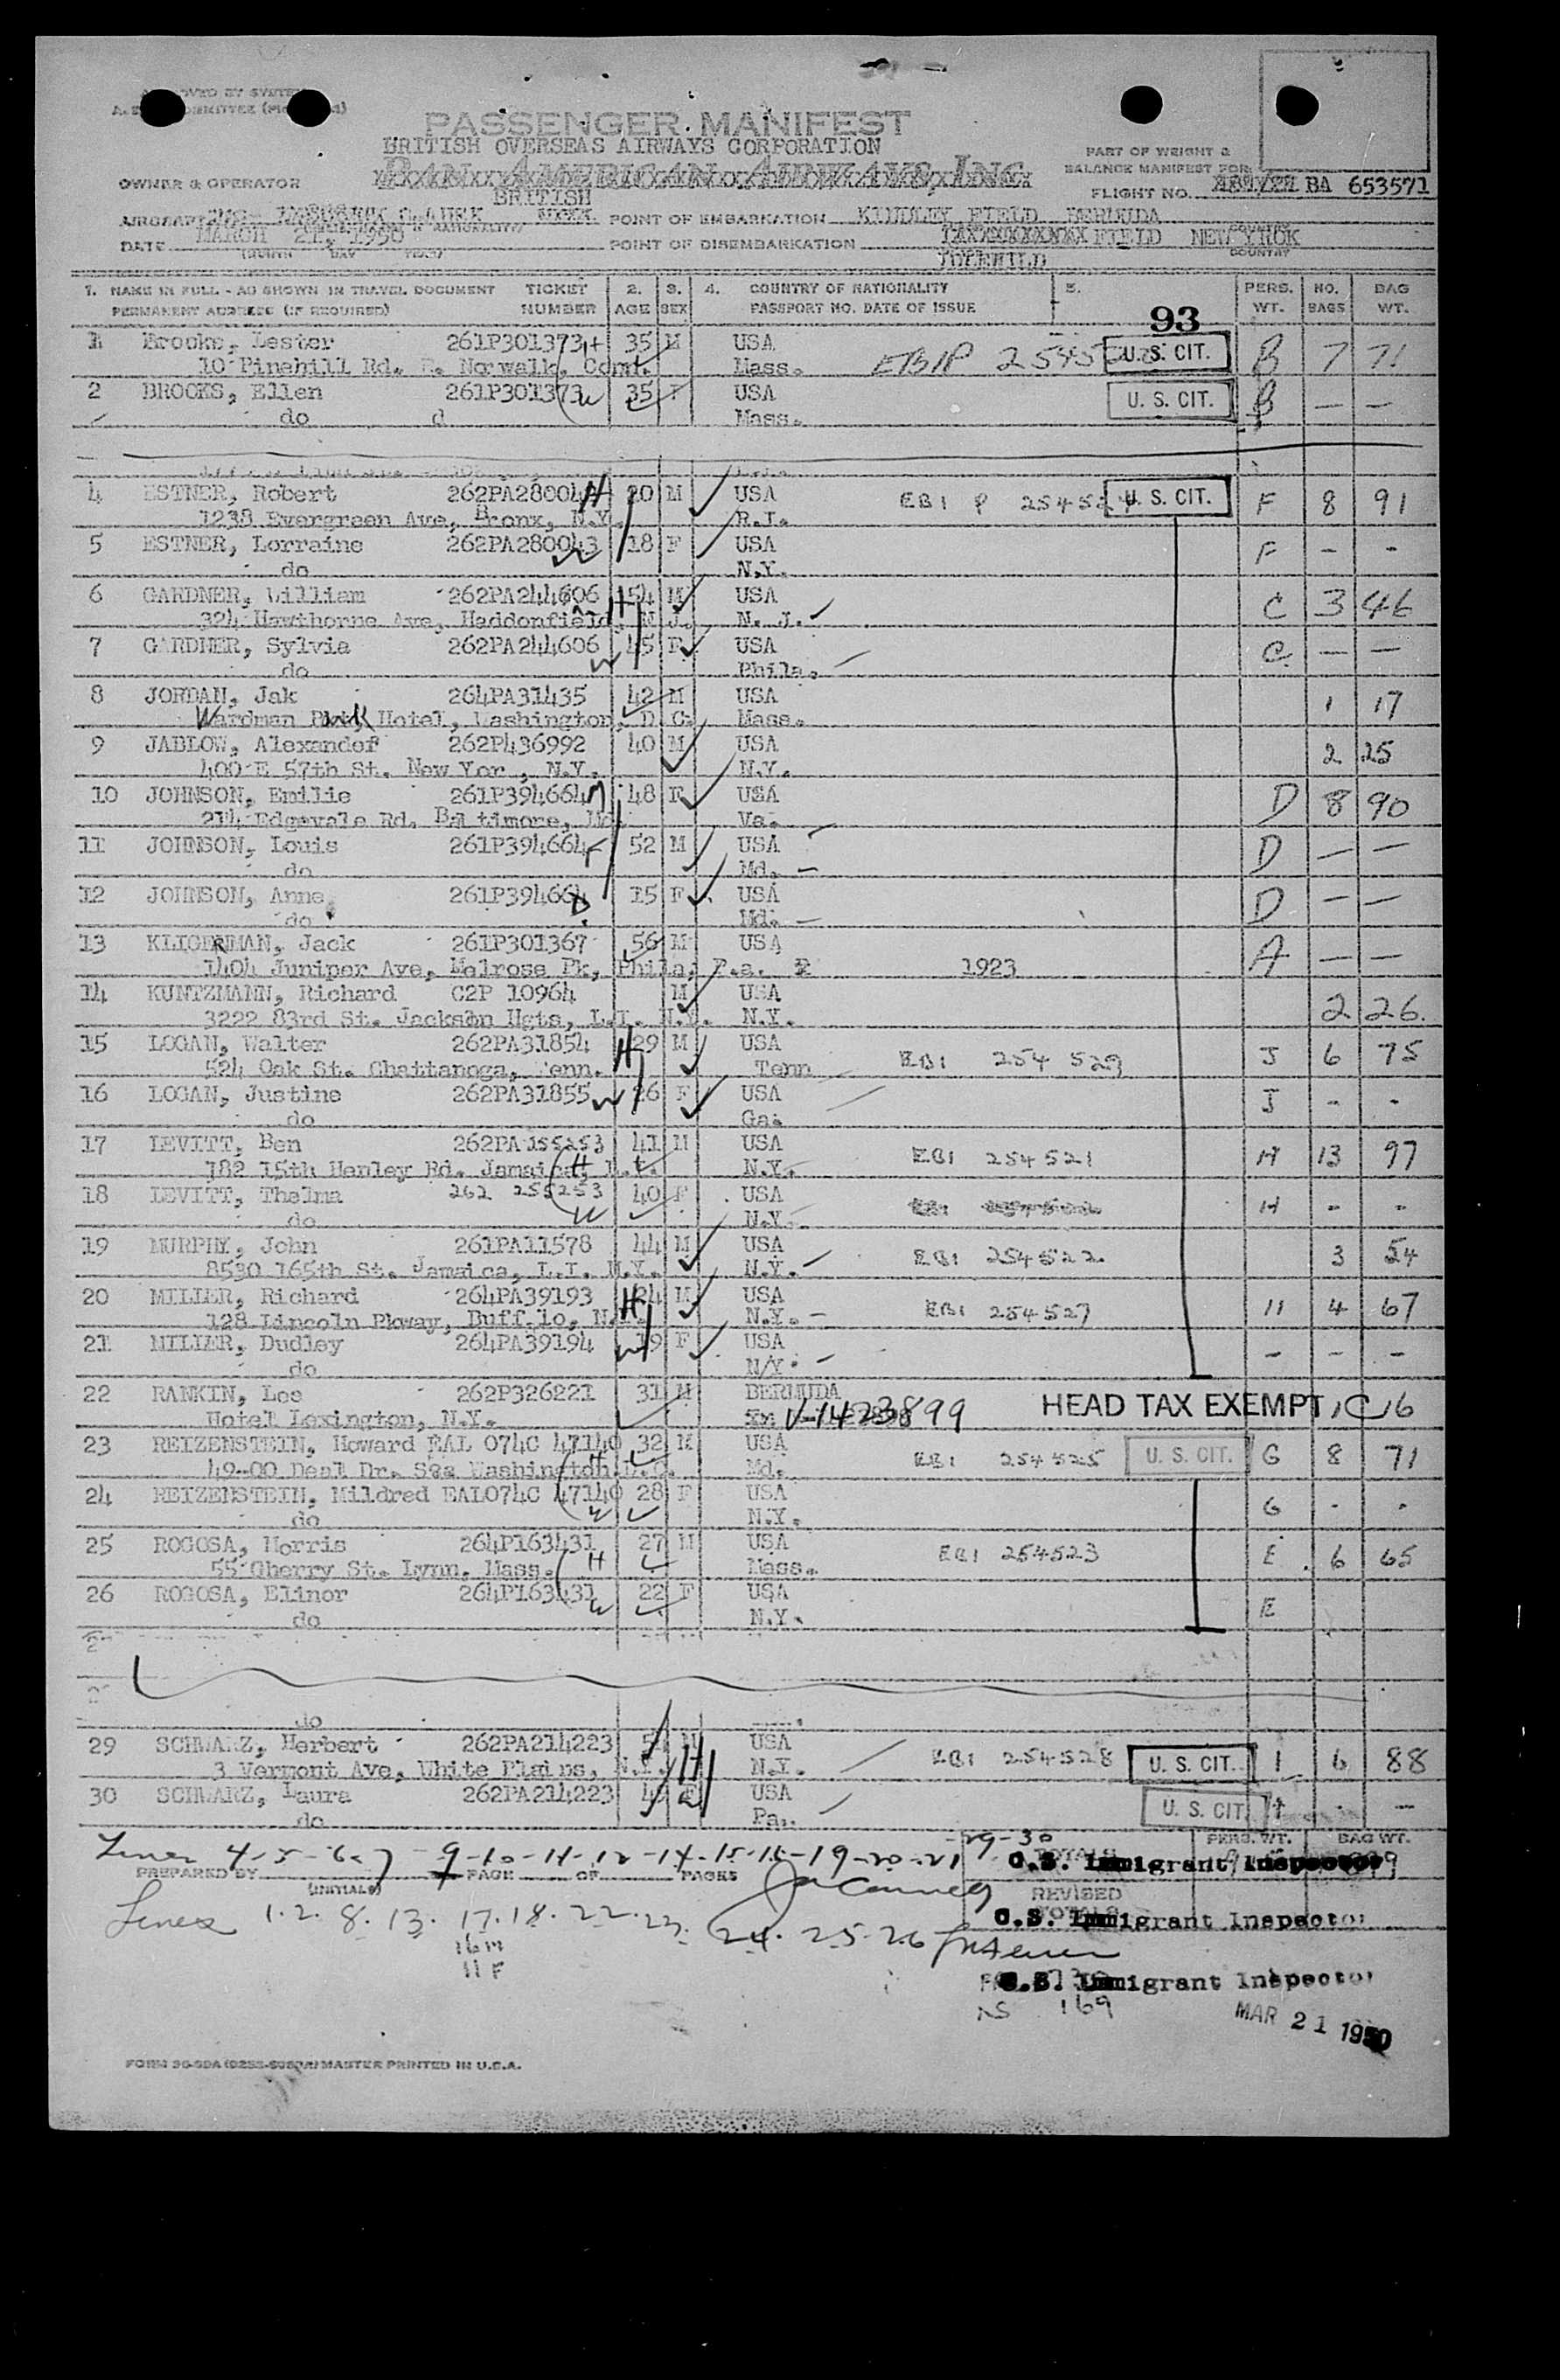 PASSENGER MANIFEST
BRITISH OVERSEAS AIRWAYS CORPORATION
PAN AMERICAN AIRWAYS, INC.
PART OF WEIGHT &
BALANCE MANIFEST FOR
OWNER & OPERATOR
BRITISH
FLIGHT NO. BA 653571
AIRCRAFT POINT OF EMBARKATION KINDLEY FIELD BERMUDA
DATE MARCH 21, 1950 POINT OF DISEMBARKATION FIELD NEW YROK
IDLEWILD COUNTRY
1. NAME IN FULL - AS SHOWN IN TRAVEL DOCUMENT TICKET 2. 3. 4. COUNTRY OF NATIONALITY 5. PERS. NO. BAG
PERMANENT ADDRESS (IF REQUIRED) NUMBER AGE SEX PASSPORT NO. DATE OF ISSUE WT. BAGS WT.
93
1 Brooks, Lester 261P301373 H 35 M USA U. S. CIT. B 7 71
10 Pinehill Rd. Norwalk, Conn. Mass.
2 BROOKS, Ellen 261P301373 W 35 F USA U. S. CIT. B — —
do d Mass.
4 ESTNER, Robert 262PA28004 H 20 M USA EBI P U. S. CIT. F 8 91
1238 Evergreen Ave, Bronx, N.Y. R.I.
5 ESTNER, Lorraine 262PA280043 W 18 F USA F - -
do N.Y.
6 GARDNER, William 262PA244606 H 54 M USA C 3 46
324 Hawthorne Ave, Haddonfield, N J. N. J.
7 GARDNER, Sylvia 262PA244606 W 45 F USA C — —
do Phila.
8 JORDAN, Jak 264PA31435 42 M USA 1 17
Wardman Park Hotel, Washington, D C. Mass.
9 JABLOW, Alexander 262P436992 40 M USA 2 25
400 E 57th St. New Yor , N.Y. N.Y.
10 JOHNSON, Emilie 261P394664 M 48 F USA D 8 90
214 Edgevale Rd. Baltimore, Md. Va.
11 JOHNSON, Louis 261P394664 F 52 M USA D — —
do Md.
12 JOHNSON, Anne 261P394664 D 15 F USA D — —
do Md.
13 KLIGERMAN, Jack 261P301367 56 M USA A — —
1404 Juniper Ave, Melrose Pk, Phila, P.a. 1923
14 KUNTZMANN, Richard C2P 10964 M USA 2 26.
3222 83rd St. Jackson Hgts, L.I. N.Y. N.Y.
15 LOGAN, Walter 262PA31854 H 29 M USA EBI 254 529 J 6 75
524 Oak St. Chattanoga, Tenn. Tenn
16 LOGAN, Justine 262PA31855 W 26 F USA J - -
do Ga.
17 LEVITT, Ben 262PA 255253 41 M USA EBI 254521 H 13 97
182 15th Henley Rd. Jamaica, H N.Y.
18 LEVITT, Thelma 262 255253 40 F USA H - -
do W N.Y.
19 MURPHY, John 261PA11578 44 M USA EBI 254522 3 54
8530 165th St. Jamaica, L.I. N.Y. N.Y.
20 MILLER, Richard 264PA39193 H 24 M USA EBI 254527 11 4 67
128 Lincoln Pkway, Buffalo, N.Y. N.Y.
21 MILLER, Dudley 264PA39194 W 19 F USA - - -
do N/Y.
22 RANKIN, Les 262P326221 31 M BERMUDA HEAD TAX EXEMPT 1 C 16
Hotel Lexington, N.Y. V-1423899
23 REIZENSTEIN, Howard EAL 074C 47140 32 M USA EBI 254525 U. S. CIT. G 8 71
49-00 Deal Dr. Washington D.C. H Md.
24 REIZENSTEIN, Mildred EAL074C 47140 W 28 F USA G - -
do N.Y.
25 ROGOSA, Morris 264P163431 27 M USA EBI 254523 E 6 65
55 Cherry St. Lynn. Mass. H Mass.
26 ROGOSA, Elinor 264P163431 W 22 F USA E
do N.Y.
do
29 SCHWARZ, Herbert 262PA214223 M USA EBI 254528 U. S. CIT. I 6 88
3 Vermont Ave, White Plains, N.Y. H N.Y.
30 SCHWARZ, Laura 262PA214223 F USA U. S. CIT. I - —
do Pa.
Lines 4-5-6-7 9-10-11-12-14-15-16-19-20-21 -29-30
PERS. WT. BAG WT.
TOTALS
U.S. Immigrant Inspector
PREPARED BY (INITIALS) PAGE OF PAGES
REVISED TOTALS
Lines 1. 2. 8. 13. 17. 18. 22. 23. 24. 25. 26
U.S. Immigrant Inspector
16 M
11 F
U.S. Immigrant Inspector
169
MAR 21 1950
MASTER PRINTED IN U.S.A.